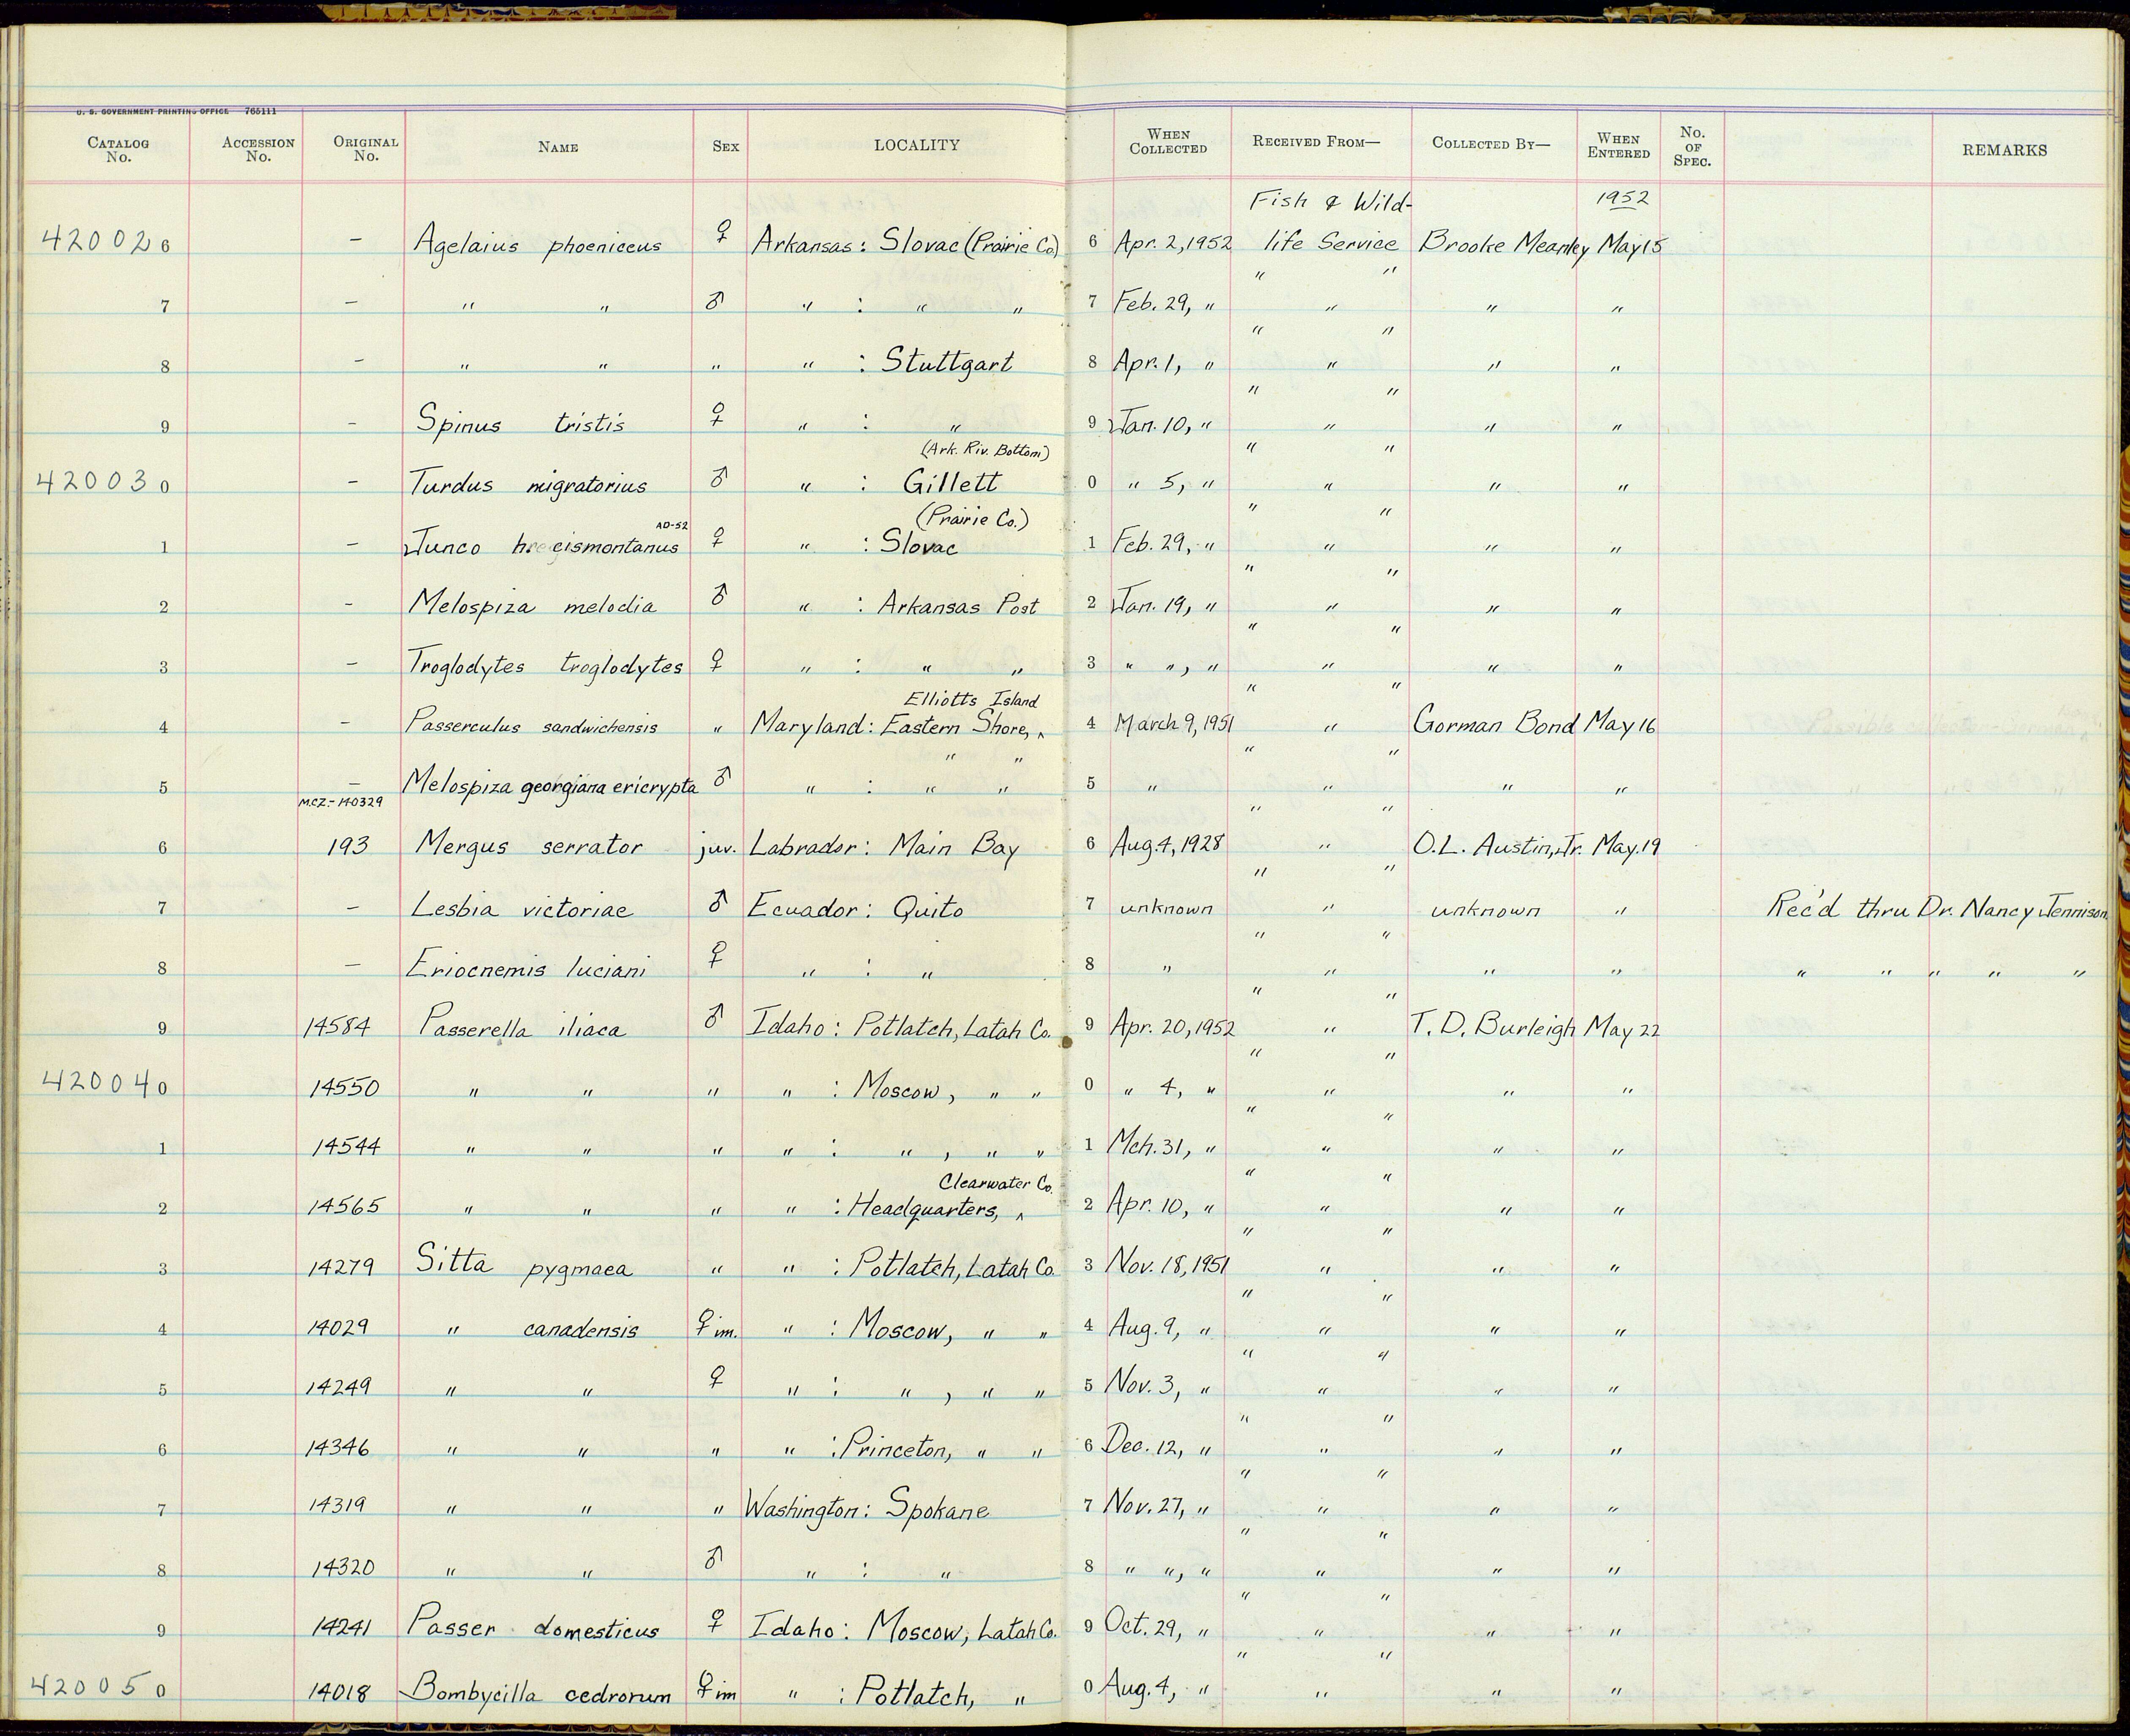 U. S. GOVERNMENT PRINTING OFFICE 765111
CATALOG No. ACCESSION No. ORIGINAL No. NAME SEX LOCALITY WHEN COLLECTED RECEIVED FROM— COLLECTED BY— WHEN ENTERED No. OF SPEC. REMARKS
Fish & Wild- 1952
420026 – Agelaius phoeniceus ♀ Arkansas: Slovac (Prairie Co.) 6 Apr. 2, 1952 life Service Brooke Meanley May 15
" "
7 – " " ♂ " : " " 7 Feb. 29, " " " "
" "
8 – " " " " : Stuttgart 8 Apr. 1, " " " "
" "
9 – Spinus tristis ♀ " : " 9 Jan. 10, " " " "
(Ark. Riv. Bottom) " "
420030 – Turdus migratorius ♂ " : Gillett 0 " 5, " " " "
(Prairie Co.) " "
AD-52
1 – Junco cismontanus ♀ " : Slovac 1 Feb. 29, " " " "
" "
2 – Melospiza melodia ♂ " : Arkansas Post 2 Jan. 19, " " " "
" "
3 – Troglodytes troglodytes ♀ " : " " 3 " ", " " " "
" "
Elliotts Island
4 – Passerculus sandwichensis " Maryland: Eastern Shore, ^ 4 March 9, 1951 " Gorman Bond May 16
" " " "
5 – Melospiza georgiana ericrypta ♂ " : " " 5 " " " "
M.C.Z.- 140329 " "
6 193 Mergus serrator juv. Labrador: Main Bay 6 Aug. 4, 1928 " O.L. Austin, Jr. May. 19
" "
7 – Lesbia victoriae ♂ Ecuador: Quito 7 unknown " unknown " Rec'd thru Dr. Nancy Jennison.
" "
8 – Eriocnemis luciani ♀ " : " 8 " " " " " " " " "
" "
9 14584 Passerella iliaca ♂ Idaho: Potlatch, Latah Co. 9 Apr. 20, 1952 " T. D. Burleigh May 22
" "
420040 14550 " " " " : Moscow, " " 0 " 4, " " " "
" "
1 14544 " " " " : " , " " 1 Mch. 31, " " " "
Clearwater Co. " "
2 14565 " " " " : Headquarters, ^ 2 Apr. 10, " " " "
" "
3 14279 Sitta pygmaea " " : Potlatch, Latah Co. 3 Nov. 18, 1951 " " "
" "
4 14029 " canadensis ♀ im. " : Moscow, " " 4 Aug. 9, " " " "
" "
5 14249 " " ♀ " : " , " " 5 Nov. 3, " " " "
" "
6 14346 " " " " : Princeton, " " 6 Dec. 12, " " " "
" "
7 14319 " " " Washington: Spokane 7 Nov. 27, " " " "
" "
8 14320 " " ♂ " : " 8 " ", " " " "
" "
9 14241 Passer domesticus ♀ Idaho: Moscow, Latah Co. 9 Oct. 29, " " " "
" "
420050 14018 Bombycilla cedrorum ♀ im " : Potlatch, " 0 Aug. 4, " " " "